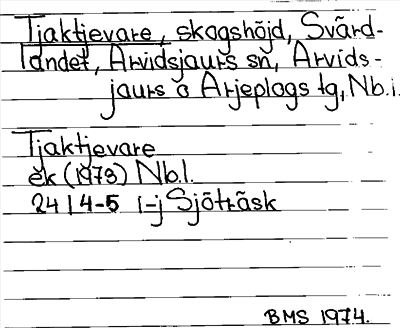 Tjaktjevare, skogshöjd, Svärd-
landet, Arvidsjaurs sn, Arvids-
jaurs o Arjeplogs tg, Nb.l.
Tjaktjevare
ek (1978) Nb.l.
24 I 4-5 i-j Sjöträsk
BMS 1974.